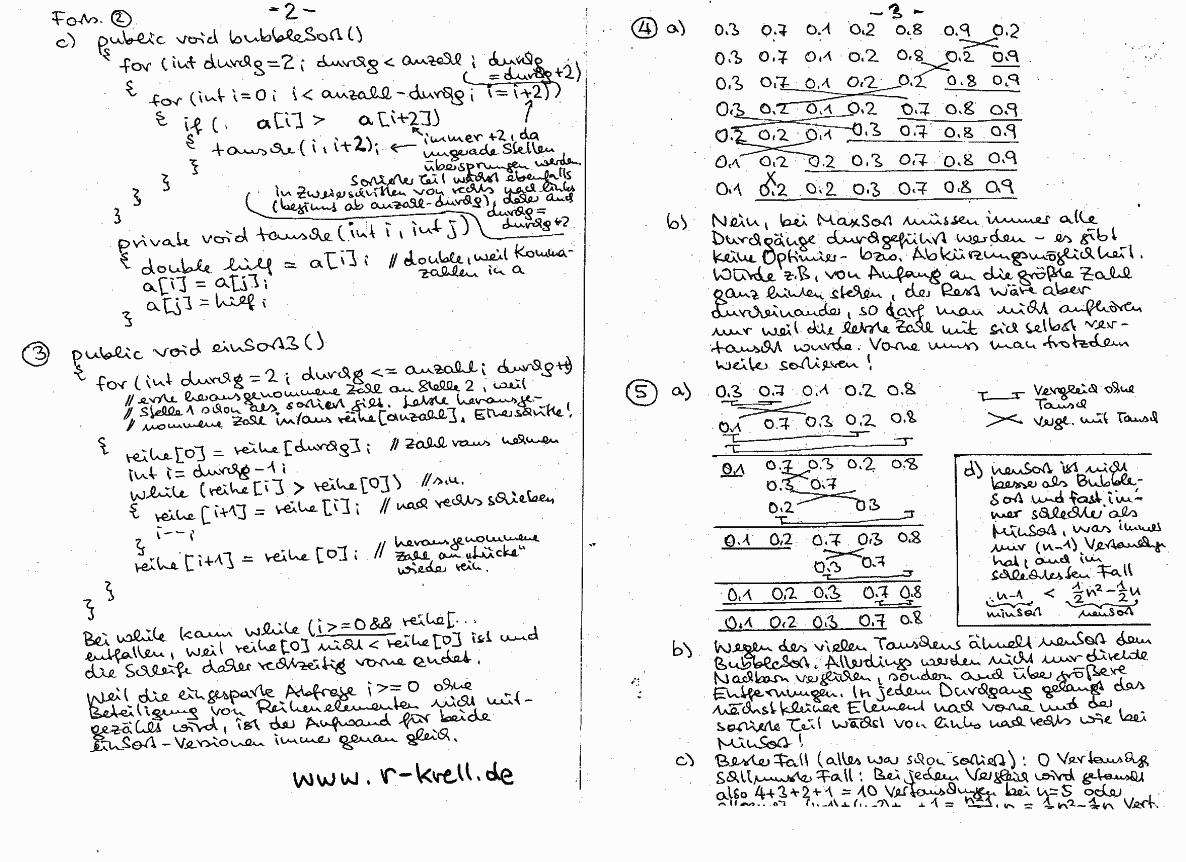 - 2 -
Forts. ②
c) public void bubbleSort()
{
for (int durchg=2; durchg < anzahl; durchg
= durchg+2)
{ for (int i=0; i < anzahl-durchg; i=i+2))
{ if ( a[i] > a[i+2])
{ tausche(i, i+2); ← immer +2, da
ungerade Stellen
übersprungen werden
}
}
Sortierte Teil wächst ebenfalls
in Zweierschritten von rechts nach links
(beginnt ab anzahl-durchg), daher auch
durchg =
durchg+2
}
}
private void tausche(int i, int j)
{ double hilf = a[i]; // double, weil Komma-
zahlen in a
a[i] = a[j];
a[j] = hilf;
}
③ public void einSort3()
{
for (int durchg=2; durchg <= anzahl; durchg++)
// erste herausgenommene Zahl an Stelle 2, weil
// Stelle 1 schon als sortiert gilt. Letzte herausge-
// nommene Zahl in/aus reihe[anzahl]. Einerschritte!
{ reihe[0] = reihe[durchg]; // Zahl raus nehmen
int i = durchg-1;
while (reihe[i] > reihe[0]) // s.u.
{ reihe[i+1] = reihe[i]; // nach rechts schieben
i--;
}
reihe[i+1] = reihe[0]; // herausgenommene
Zahl an "Lücke"
wieder rein.
}
}
Bei while kann while (i>=0 && reihe[...
entfallen, weil reihe[0] nicht < reihe[0] ist und
die Schleife daher rechtzeitig vorne endet.
Weil die eingesparte Abfrage i>=0 ohne
Beteiligung von Reihenelementen nicht mit-
gezählt wird, ist der Aufwand für beide
einSort-Versionen immer genau gleich.
www.r-krell.de
- 3 -
④ a) 0.3 0.7 0.1 0.2 0.8 0.9 0.2
0.3 0.7 0.1 0.2 0.8 0.2 0.9
0.3 0.7 0.1 0.2 0.2 0.8 0.9
0.3 0.2 0.1 0.2 0.7 0.8 0.9
0.2 0.2 0.1 0.3 0.7 0.8 0.9
0.1 0.2 0.2 0.3 0.7 0.8 0.9
0.1 0.2 0.2 0.3 0.7 0.8 0.9
b) Nein, bei MaxSort müssen immer alle
Durchgänge durchgeführt werden – es gibt
keine Optimier- bzw. Abkürzungsmöglichkeit.
Würde z.B. von Anfang an die größte Zahl
ganz hinten stehen, der Rest wäre aber
durcheinander, so darf man nicht aufhören
nur weil die letzte Zahl mit sich selbst ver-
tauscht wurde. Vorne muss man trotzdem
weiter sortieren!
⑤ a) 0.3 0.7 0.1 0.2 0.8
Vergleich ohne
Tausch
0.1 0.7 0.3 0.2 0.8
Vergl. mit Tausch
0.1 0.7 0.3 0.2 0.8
0.3 0.7
0.2 0.3
0.1 0.2 0.7 0.3 0.8
0.3 0.7
0.1 0.2 0.3 0.7 0.8
0.1 0.2 0.3 0.7 0.8
d) neuSort ist nicht
besser als Bubble-
Sort und fast im-
mer schlechter als
MinSort, was immer
nur (n-1) Vertauschg.
hat, auch im
schlechtesten Fall
n-1 < ½n²-½n
minSort neuSort
b) Wegen des vielen Tauschens ähnelt neuSort dem
BubbleSort. Allerdings werden nicht nur direkte
Nachbarn verglichen, sondern auch über größere
Entfernungen. In jedem Durchgang gelangt das
nächstkleinere Element nach vorne und der
sortierte Teil wächst von links nach rechts wie bei
MinSort!
c) Bester Fall (alles war schon sortiert): 0 Vertauschg
Schlimmster Fall: Bei jedem Vergleich wird getauscht
also 4+3+2+1 = 10 Vertauschungen bei n=5 oder